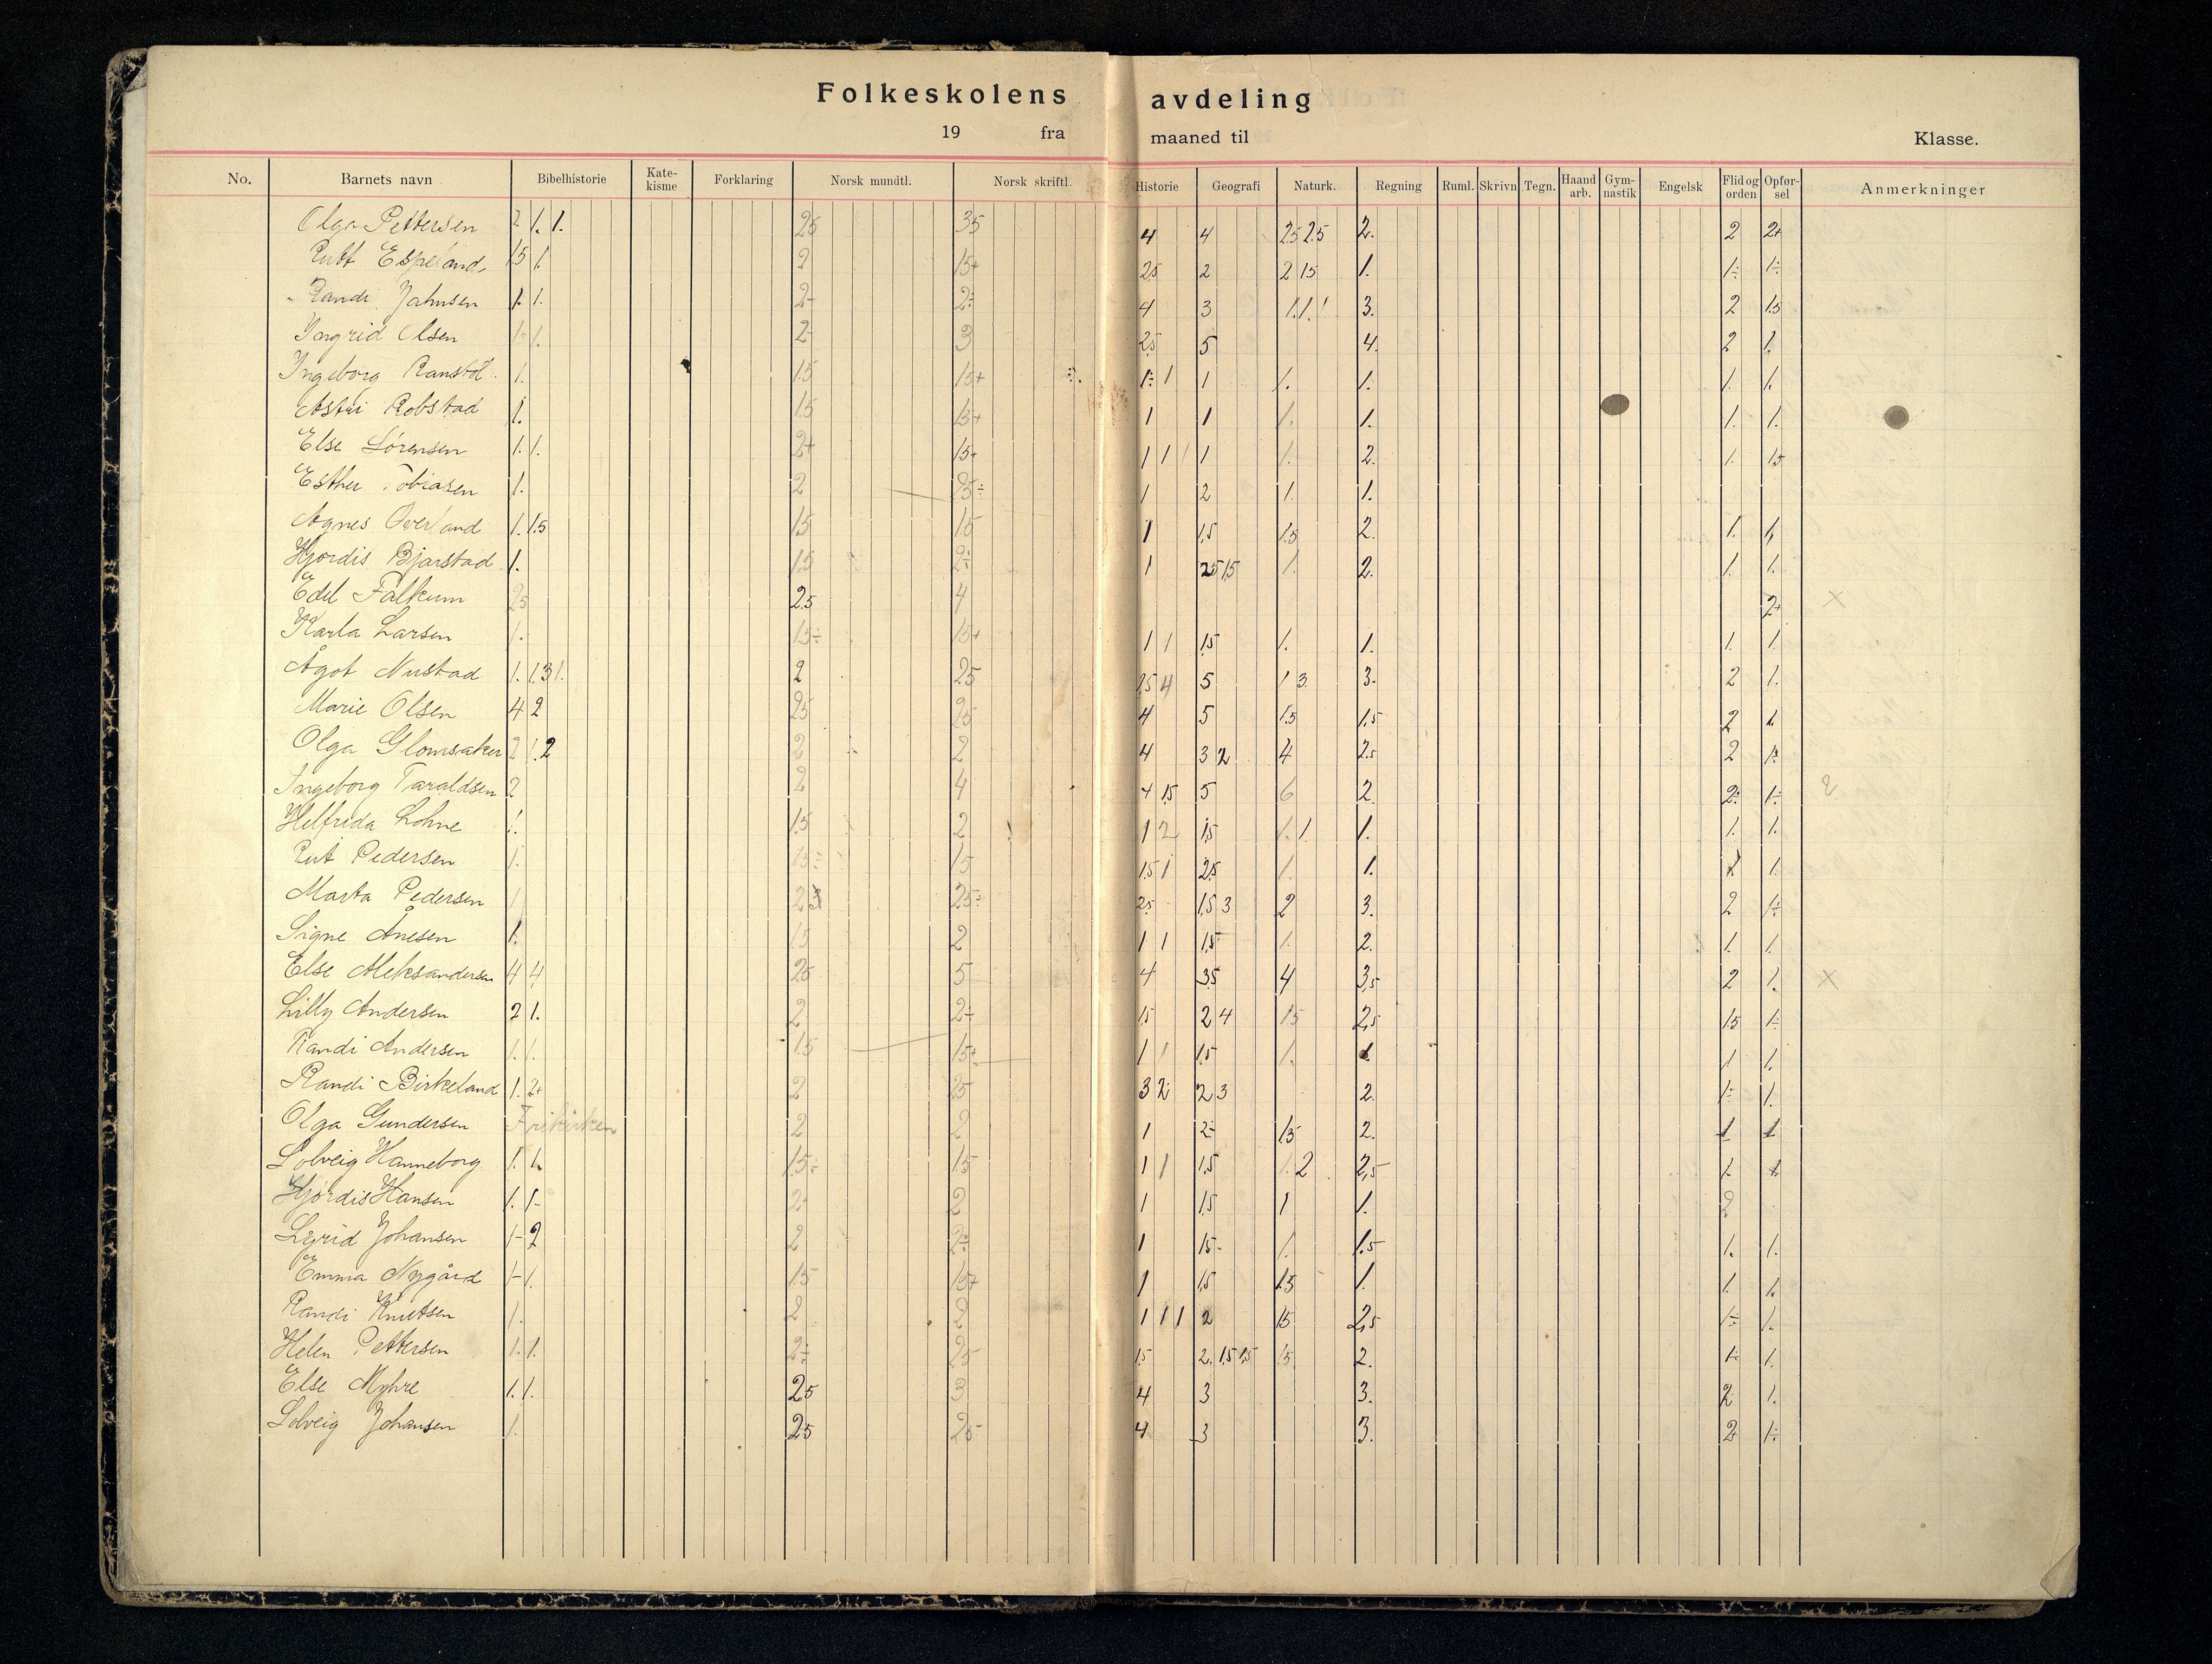 Folkeskolens avdeling
19 fra maaned til Klasse.
No. Barnets navn Bibelhistorie Kate-kisme Forklaring Norsk mundtl. Norsk skriftl. Historie Geografi Naturk. Regning Ruml. Skrivn. Tegn. Haand arb. Gym-nastik Engelsk Flid og orden Opfør-sel Anmerkninger
Olga Pettersen 2 1. 1. 25 35 4 4 25 25 2. 2 2+
Rutt Espeland 15 1. 2 15+ 25 2 2 15 1. 1÷ 1÷
Randi Jahnsen 1. 1. 2- 2÷ 4 3 1. 1. 1 3. 2 15
Ingrid Olsen 1- 1. 2- 3 25 5 4. 2 1.
Ingeborg 1. 15 15+ 1÷ 1 1 1. 1. 1. 1.
Robstad 1. 15 15+ 1 1 1. 1. 1. 1.
Else Sørensen 1. 1. 2+ 15+ 1 1 1 1 1. 2. 1. 15
Esther Tobiasen 1. 2 25÷ 1 2 1. 1.
Agnes Øverland 1. 1.5 15 15 1 15 15 2. 1. 1.
Hjørdis Bjarstad 1. 15 2÷ 1 25 15 1. 2. 1. 1.
Edel Falkum 25 25 4 2+ ×
Karla Larsen 1. 15÷ 15+ 1 1 15 1. 1. 1. 1.
Ågot Nustad 1. 1. 3 1. 2 25 15 4 5 1 3 3. 2 1.
Marie Olsen 4 2 25 25 4 5 15 15 2 1
Olga Glomsaker 2 1. 2 2 2 4 3 2 4 25 2 1÷
Ingeborg Taraldsen 2 2 4 4 15 5 6 2. 2÷ 1÷
Helfrida Lohne 1. 15 2 1 2 15 1. 1 1. 1. 1.
Rut Pedersen 1. 15÷ 15 15 1 25 1. 1. 1 1.
Marta Pedersen 1 2 3 25÷ 25 15 3 2 3. 2 1÷
Signe Ånesen 1. 15 2 1 1 15 1. 2. 1. 1.
Else Aleksandersen 4 4 25 5 4 35 4 3,5 2 1. ×
Lilly Andersen 2 1. 2 2÷ 15 2 4 15 2,5 15 1÷
Randi Andersen 1. 1. 15 15+ 1 1 15 1. 1 1.
Randi Birkeland 1. 2+ 2 25 3 2 2 3 2. 1÷ 1.
Olga Gundersen Frikirken 2 2 1 2÷ 15 2. 1 1
Solveig Hanneborg 1. 1. 15÷ 15 1 1 15 1. 2 2,5 1 1
Hjørdis Hansen 1. 1- 2+ 2 1 15 1 1. 2
Johansen 1- 2 2 2÷ 1 15- 1. 1.5 1. 1.
Emma Nygård 1- 1. 15 15+ 1 15 15 1. 1. 1.
Randi Knutsen 1. 2 2 1 1 1 2 15 2,5 1÷ 1.
Helen Pettersen 1. 1. 2÷ 25 15 2. 15 15 15 2. 1÷ 1.
Else Myhre 1. 1. 25 3 4 3 3. 2 1.
Solveig Johansen 1. 25 25 4 3 3. 2 1÷